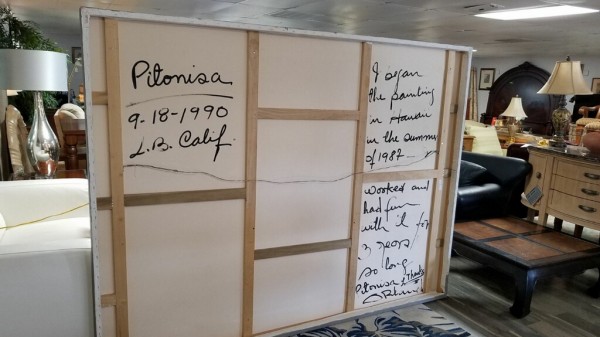 Pitonisa
9-18-1990
L.B. Calif.
I began
the painting
in Hawaii
in the summer
of 1987
worked and
had fun
with it for
3 years
so long
Pitonisa & Thanks